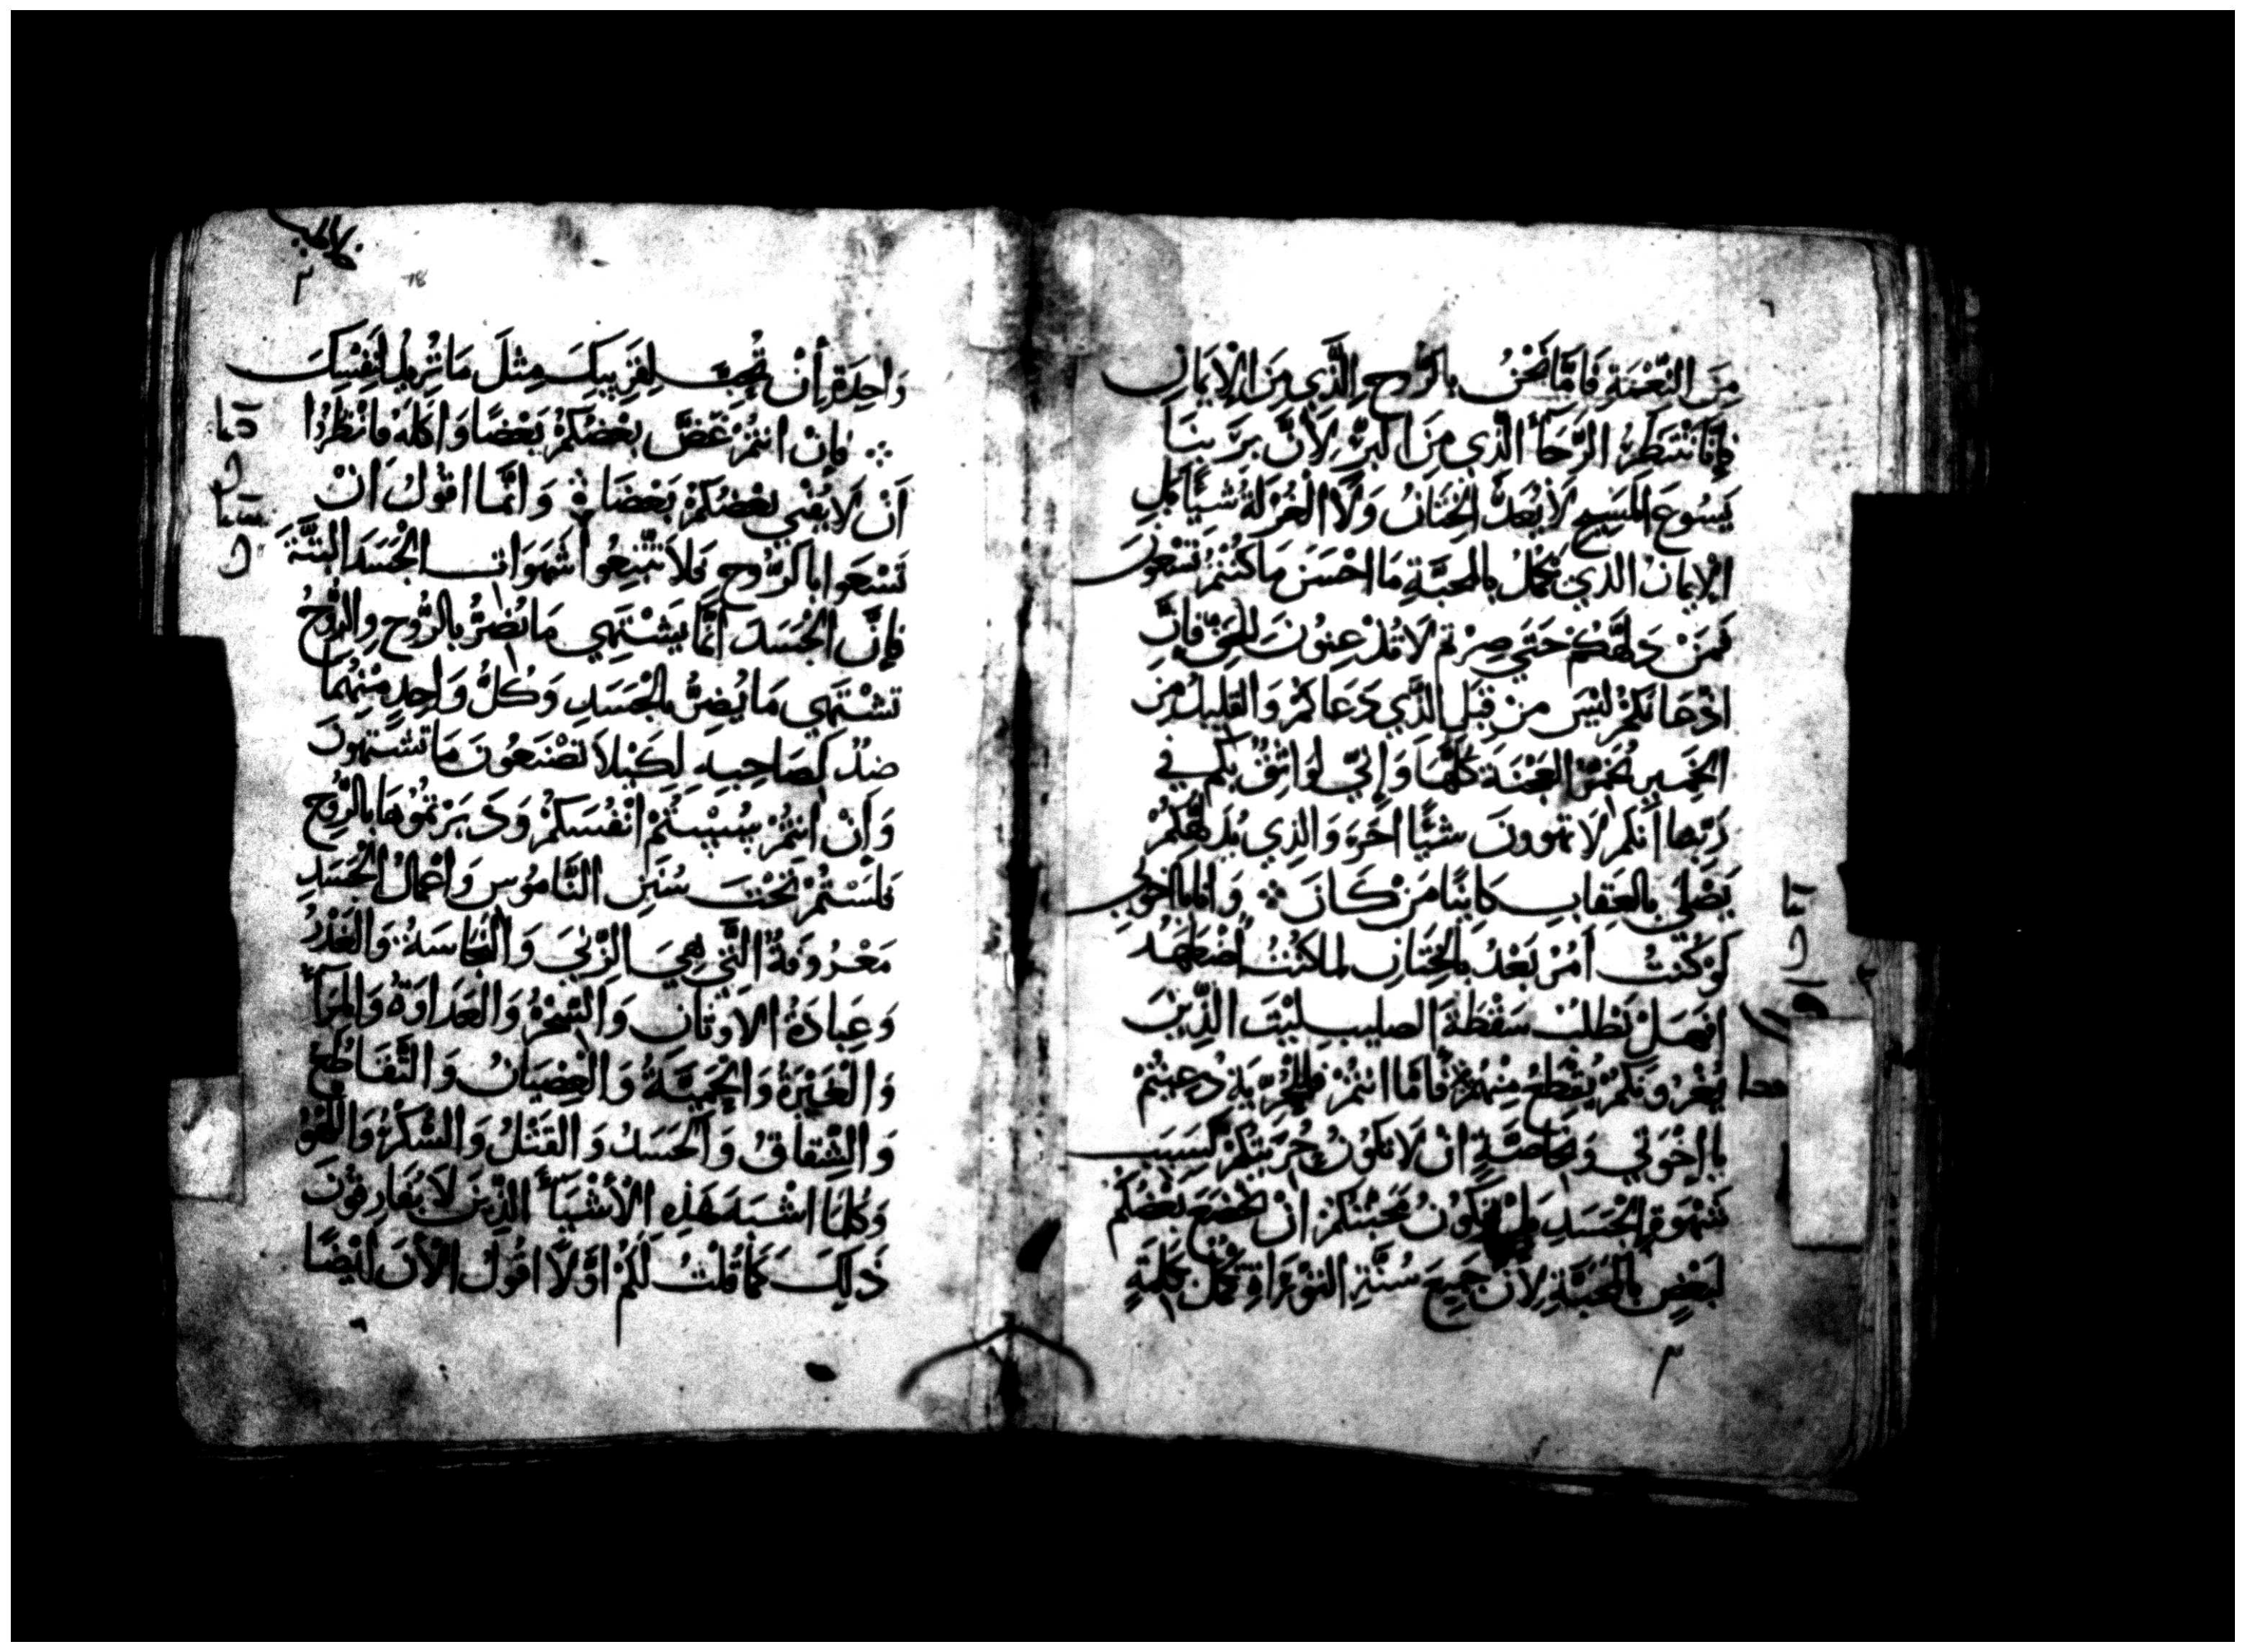 مِنَ النِّعْمَةِ فَامَّا نَحْنُ بِالرُّوحِ الَّذِي مِنَ الْإيْمَانِ
فَإِنَّا نَنْتَظِرُ الرَّجَآءَ الَّذِي مِنَ الْبَرِّ لِأَنَّ بِرَبِنَا
يَسُوعَ الْمَسِيحِ لَا يُعَدُّ الْخِتَانُ وَلَا الْغُرْلَةُ شَيًّا بَلِ
الْإيمَانُ الذي يَكْمُلُ بِالمحَبَّةِ مَا احْسَنَ مَا كُنْتُمْ تَسْعَوْنَ
فَمَنْ دَلَّهَّكُمْ حَتَي صِرْتم لَا تُذْعِنُونَ لِلحَقِّ فَإِنَّ
اذْعَانَكُمْ لَيْسَ مِنْ قِبَلِ الَّذِي دَعَاكُمْ وَالقَلِيلُ مِنَ
الخَمِيرِ يُخَمِّرُ العَجْنَةَ كُلَّهَا وَإِنِّي لَوَاثِقٌ بِكُم في
رَبِّنا أَنَّكم لَا تهوونَ شيًّا اخَرَ وَالذِي يُدَلِّهُكُمْ
يَصْلَي بِالعِقَابِ كَاينًا مَنْ كَانَ ⁘ وَانا يا اخوتي
لَوْ كُنْتُ آمُرُ بَعْدُ بِالْخِتَانِ لما كُنْتُ اُضْطَهَدُ
افهَلْ بَطَلَتْ سَقْطَةُ الصليبِ لَيْتَ الَّذِينَ
يُغْرُونَكُمْ يُقْطَعُ مِنْهُمْ فَأمَّا انتُمْ فَلِلْحُرِّيَةِ دُعِيتُمْ
يا إخْوَتي وَبخَاصَّةٍ انْ لَا تَكُونَ حُرِّيَتُكُمْ لِسَبَبِ
شَهْوَةِ الْجَسَدِ بَلْ تَكُونُ مَحَبَّتُكُمْ انْ يَخْضَعَ بَعْضُكُمْ
لِبَعْضٍ بِالْمَحَبَّةِ لِأنَّ جَمِيعَ سُنَّةِ التَّوْرَاةِ تَكْمُلُ بِكَلِمَةٍ
وَاحِدَةٍ أَنْ تُحِبَّ لِقَرِيبِكَ مِثْلَ مَا تُرِيدُ لِنَفْسِكَ
⁘ فَإِنْ انتُمْ عَضَّ بَعْضُكُمْ بَعْضًا وَاكَلَهُ فَانْظُرُوا
اَنْ لَا يُفْنِي بَعْضُكُمْ بَعْضًا وَانَّمَا اقُولُ اَنْ
تَسْعَوا بِالرُّوحِ فَلَا تَتَّبِعُوا شَهَوَاتِ الْجَسَدِ البَتَّةَ
فَإِنَّ الْجَسَدَ انَّمَا يَشْتَهِي مَا يُضِرُّ بِالرُّوحِ وَالرُّوحُ
تَشْتَهِي مَا يُضِرُّ بِالْجَسَدِ وَكُلُّ وَاحِدٍ مِنْهُمَا
ضِدٌّ لِصَاحِبِهِ لِكَيْلَا تَصْنَعُونَ مَا تَشْتَهُونَ
وَأَنْ انتُمْ سُسْتُمْ انْفُسَكُمْ وَدَبَرْتُمُوهَا بِالرُّوحِ
فَلَسْتُمْ تَحْتَ سُنَنِ النَّامُوسِ وَاعْمَالُ الْجَسَدِ
مَعْرُوفَةٌ الَّتي هِيَ الزِّنَي وَالنَّجَاسَةُ وَالْغَدْرُ
وَعِبَادَةُ الْاَوْثَانِ وَالسِّحْرُ وَالْعَدَاوَةُ وَالْمِرَآءُ
وَالْغَيْرَةُ وَالْحَمِيَّةُ وَالْعِصْيَانُ وَالتَّقَاطُعُ
وَالشِّقَاقُ وَالْحَسَدُ وَالقَتْلُ وَالسُّكْرُ وَاللَّهْوُ
وَكُلمَا اشْبَهَ هَذِهِ الْأَشْيَاءِ الَّذِينَ لَا يُفَارِقُونَ
ذَلِكَ كَمَا قُلْتُ لَكُمْ اوَّلًا اقُولُ الْآنَ ايْضًا